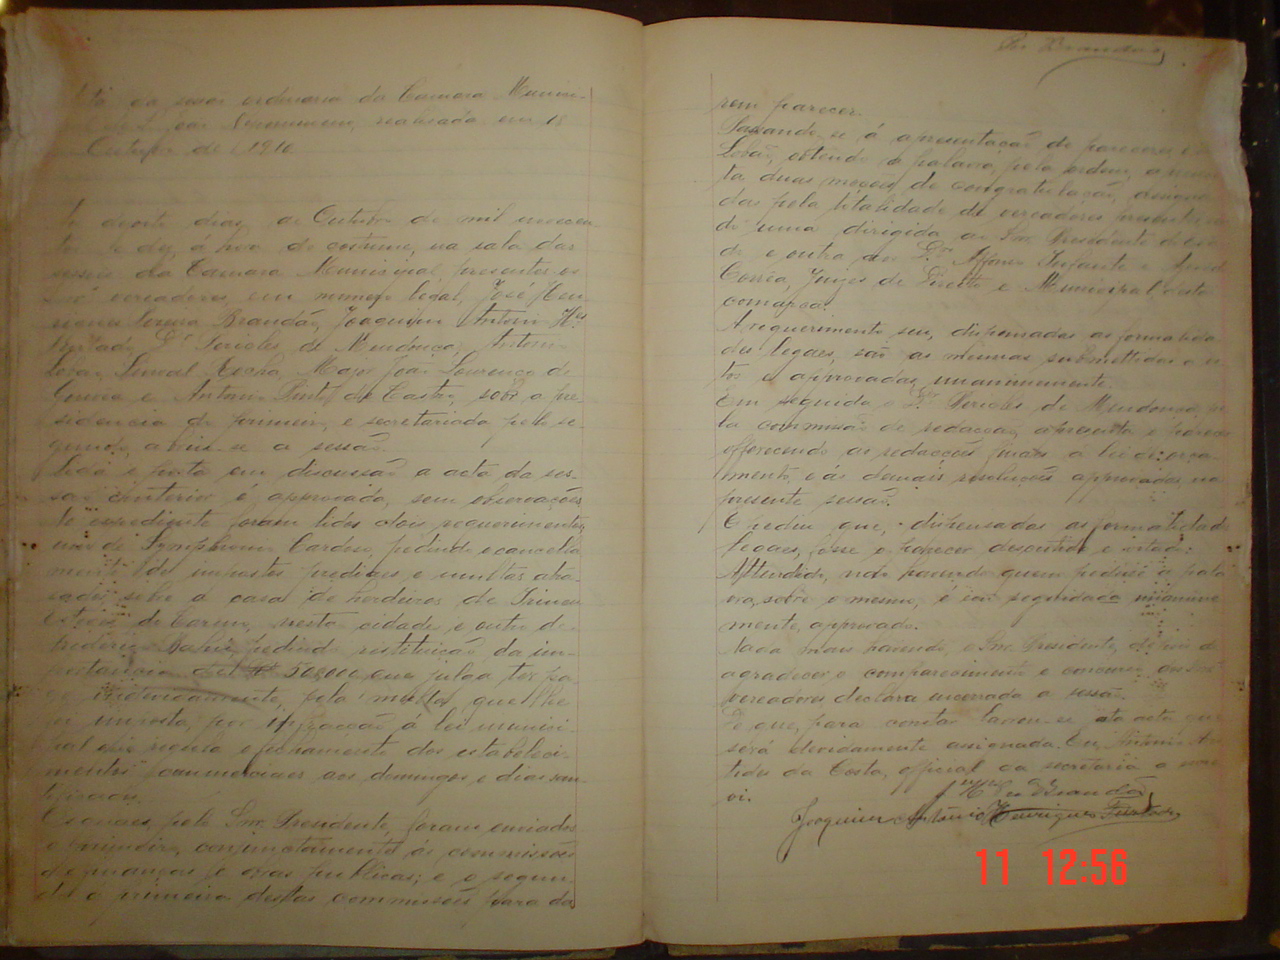 Acta da sessão ordinaria da Camara Munici-
pal de S. João Nepomuceno, realisada em 18
Outubro de 1910.
de Outubro de mil novecen-
tos e dez, á hora do costume, na sala das
sessões da Camara Municipal, presentes os
Snrs. vereadores, em numero legal, José Hen-
riques Brandão, Joaquim Antonio Hes
Furtado, Dr. Pericles de Mendonça, Antonio
Lobão, Rocha, Major João Lourenço de
e Antonio Pinto de Castro, sob a pre-
sidencia do primeiro, e secretariada pelo se-
gundo, abriu-se a sessão.
Lida e posta em discussão a acta da ses-
são anterior é approvada, sem observações.
No expediente foram lidos dois requerimentos,
um de Symphronio Cardoso, pedindo o cancella-
mento de impostos prediaes e multas atra-
sadas sobre a casa de herdeiros de
do Carmo, nesta cidade, e outro de
Frederico pedindo restituição da im-
portancia de 50,000 que julga ter pa-
go indevidamente, pela multa que lhe
foi imposta, por infracção á lei munici-
pal que regula o fechamento dos estabeleci-
mentos commerciaes aos domingos e dias san-
tificados.
Os quaes, pelo Snr. Presidente, foram enviados
o primeiro, conjunctamente ás commissões
de finanças e obras publicas; e o segun-
do á primeira destas commissões para da-
Brandão
rem parecer.
Passando-se á apresentação de pareceres o
Lobão, obtendo a palavra, pela ordem, apresen-
ta duas moções de congratulação, assigna-
das pela totalidade de vereadores presentes, sen-
do uma dirigida ao Snr. Presidente
e outra aos Drs. Affonso Infante e
Corrêa, Juizes de Direito e Municipal desta
comarca.
A requerimento seu, dispensadas as formalida-
des legaes, são as mesmas submettidas a vo-
tos e approvadas unanimemente.
Em seguida o Dr. Pericles de Mendonça, pe-
la commissão de redacção, apresenta o parecer
offerecendo as redacções finaes a lei de orça-
mento e ás demais resoluções approvadas na
presente sessão.
E pediu que, dispensadas as formalidades
legaes, fosse o parecer discutido e votado.
Attendido, não havendo quem pedisse a pala-
vra, sobre o mesmo, é em seguida unanime-
mente, approvado.
Nada mais havendo, o Snr. Presidente, depois de
agradecer o comparecimento e concurso dos Snrs.
vereadores declara encerrada a sessão.
De que, para constar lavrou-se esta acta que
será devidamente assignada. Eu, Antonio
da Costa, official da secretaria a escre-
vi.
Brandão
Joaquim Antonio Henriques Furtado
11 12:56